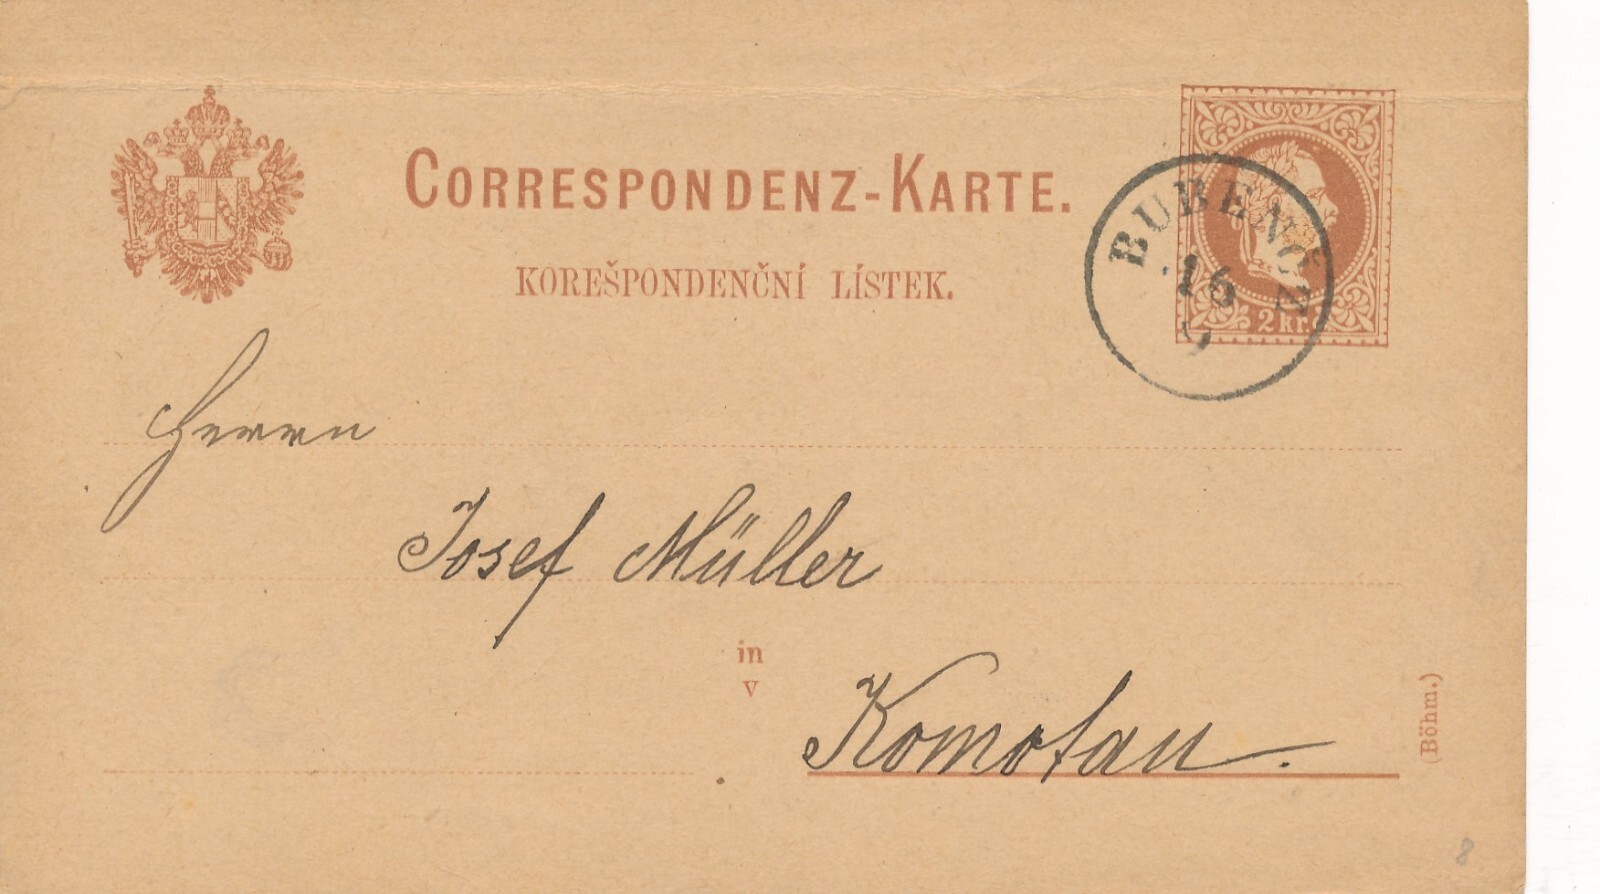 CORRESPONDENZ-KARTE.
KOREŠPONDENČNÍ LÍSTEK.
BUBENČ N
16
2 kr.
Herrn
Josef Müller
in
v
Komotau.
(Böhm.)
8